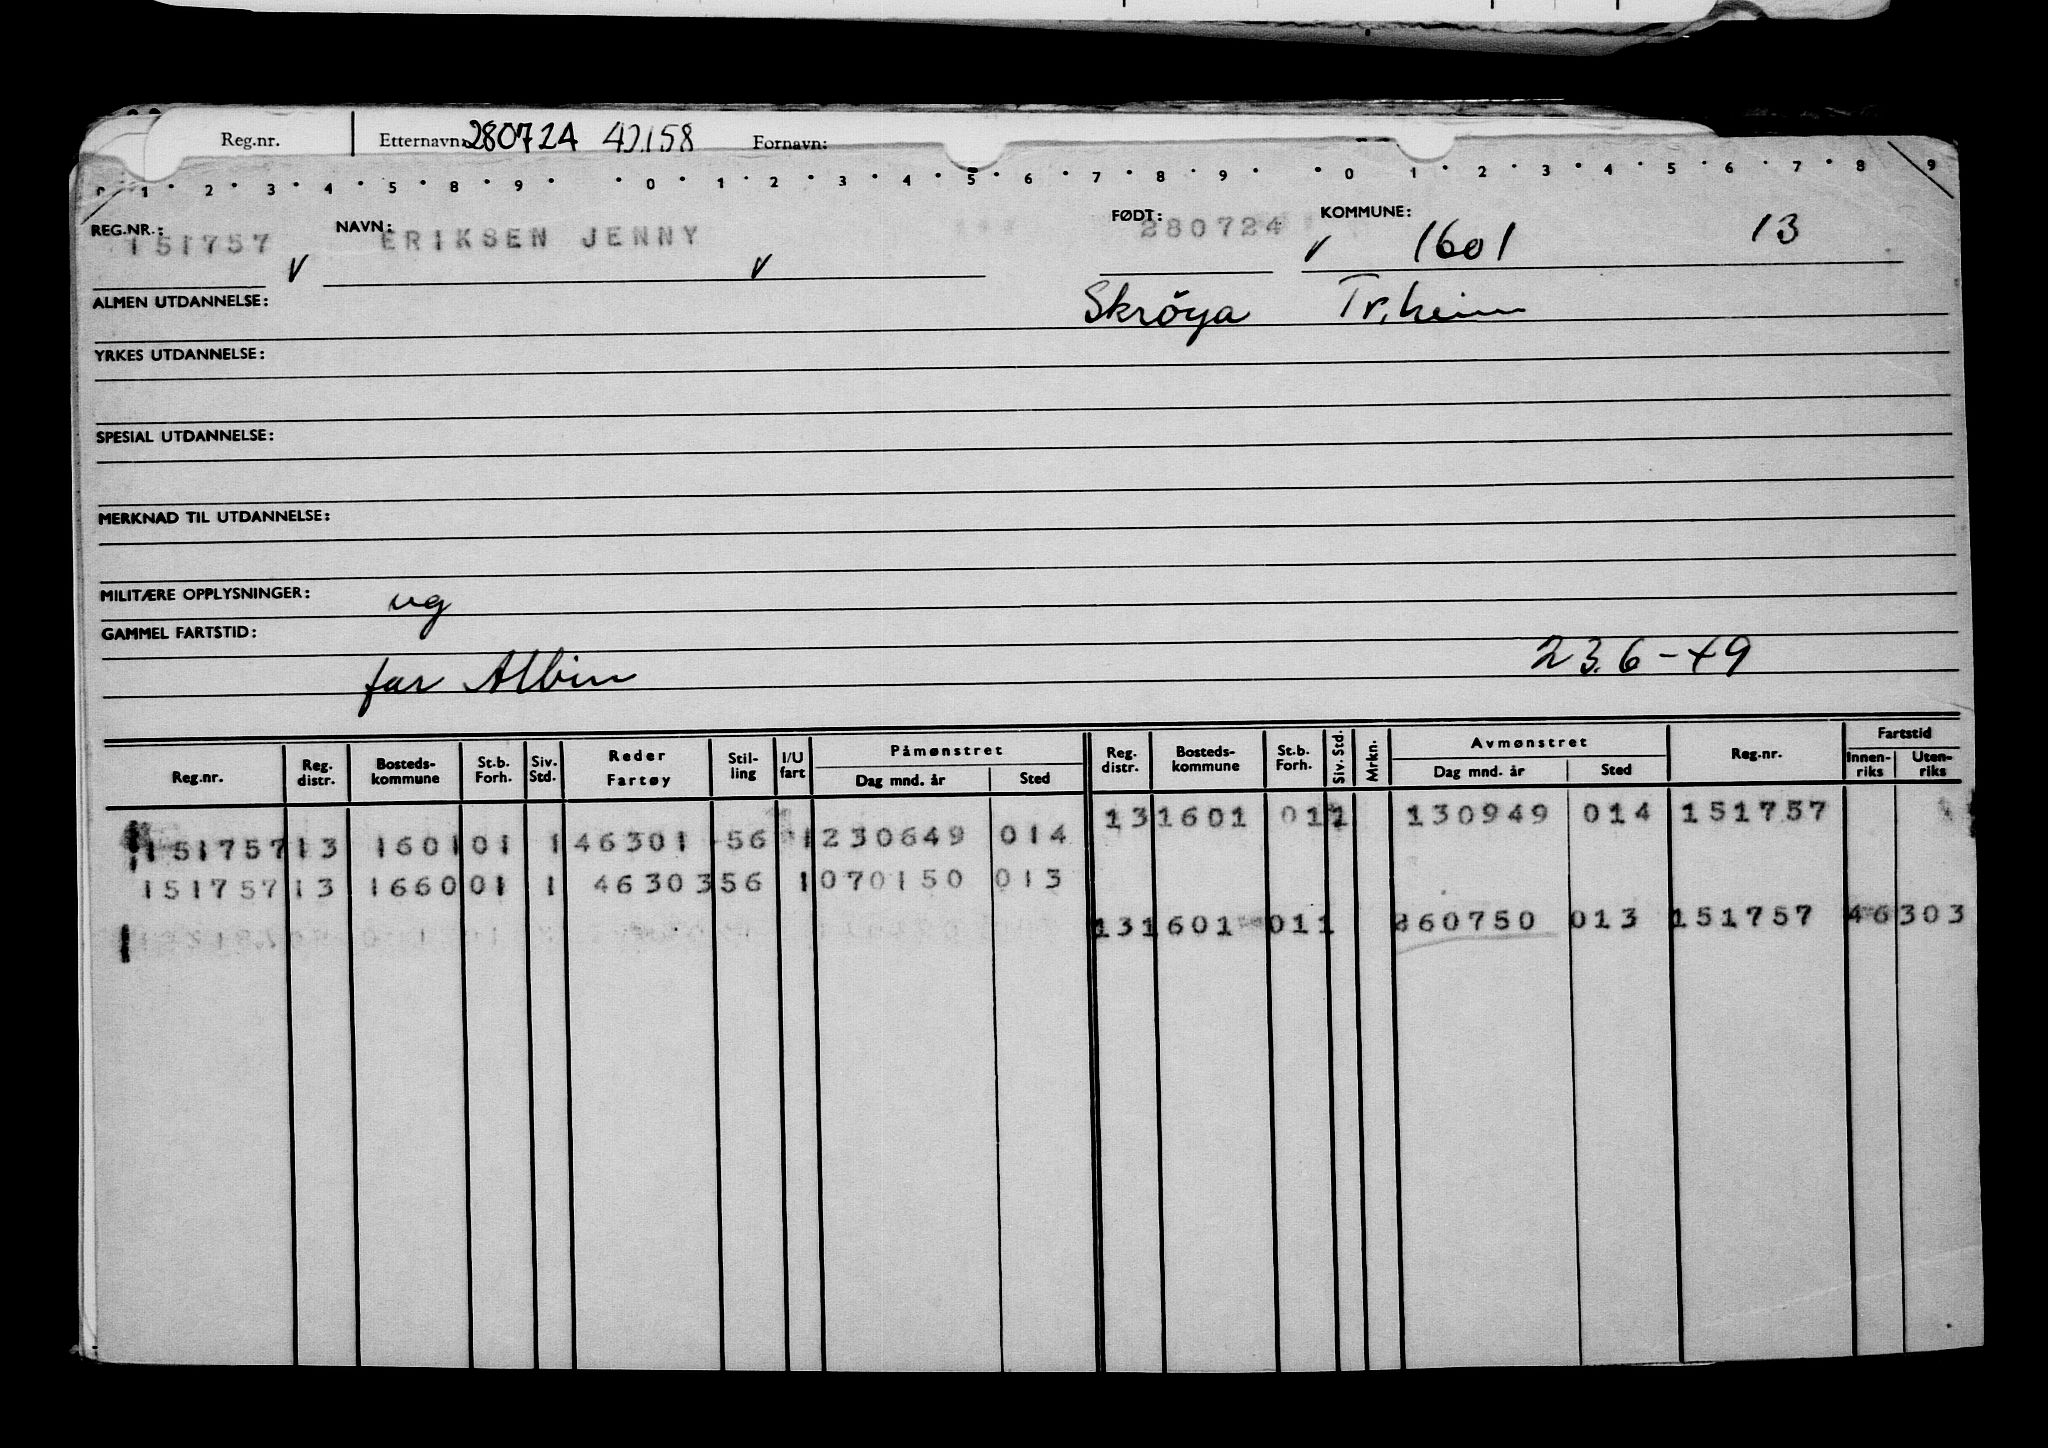 Reg.nr. Etternavn: 280724 49158 Fornavn:
0 1 2 3 4 5 8 9 0 1 2 3 4 5 6 7 8 9 0 1 2 3 4 5 6 7 8 9
REG.NR.: 151757 NAVN: ERIKSEN JENNY FØDT: 280724 KOMMUNE: 1601 13
v v v
ALMEN UTDANNELSE: Skröya Tr.heim
YRKES UTDANNELSE:
SPESIAL UTDANNELSE:
MERKNAD TIL UTDANNELSE:
MILITÆRE OPPLYSNINGER: ug
GAMMEL FARTSTID:
far Albin 23.6-49
Reg.nr. Reg. distr. Bosteds-kommune St.b. Forh. Siv. Std. Reder Fartøy Stil-ling I/U fart Påmønstret Dag mnd. år Sted Reg. distr. Bosteds-kommune St.b. Forh. Siv. Std. Mrkn. Avmønstret Dag mnd. år Sted Reg.nr. Fartstid Innen-riks Uten-riks
13 1601 01 1 130949 014 151757
151757 13 1601 01 1 46301 56 1 230649 014
151757 13 1660 01 1 46303 56 1 070150 013
13 1601 01 1 260750 013 151757 46303